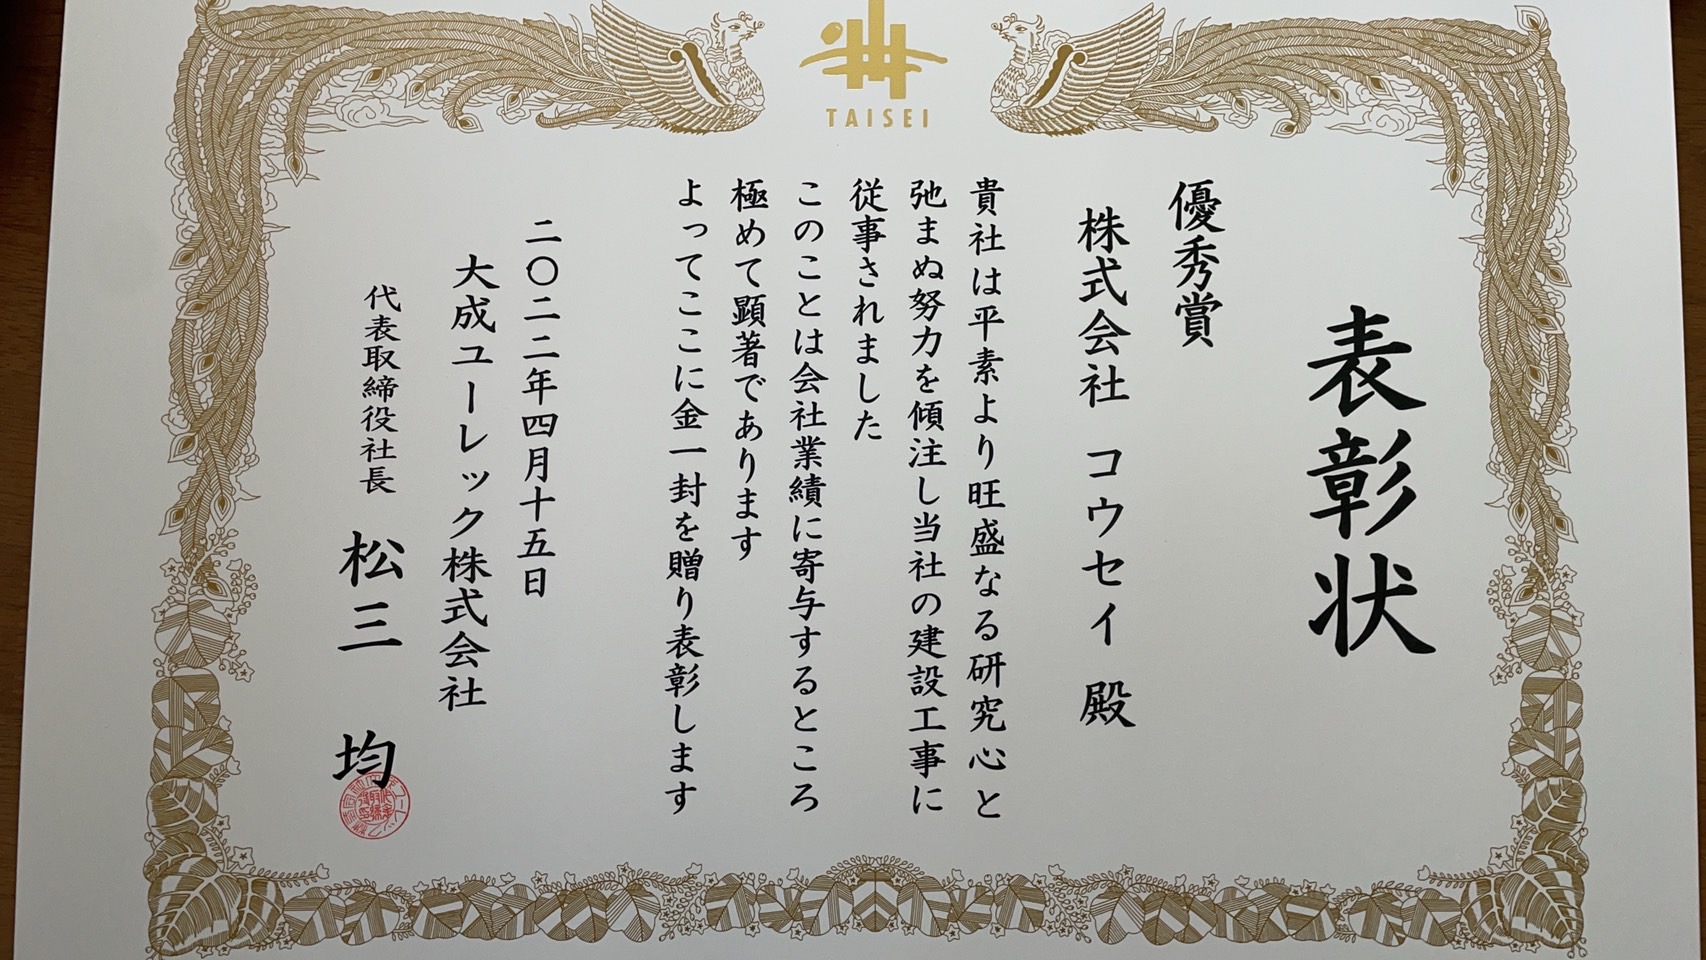 TAISEI
表彰状
優秀賞
株式会社 コウセイ 殿
貴社は平素より旺盛なる研究心と
弛まぬ努力を傾注し当社の建設工事に
従事されました
このことは会社業績に寄与するところ
極めて顕著であります
よってここに金一封を贈り表彰します
二〇二二年四月十五日
大成ユーレック株式会社
代表取締役社長 松三 均